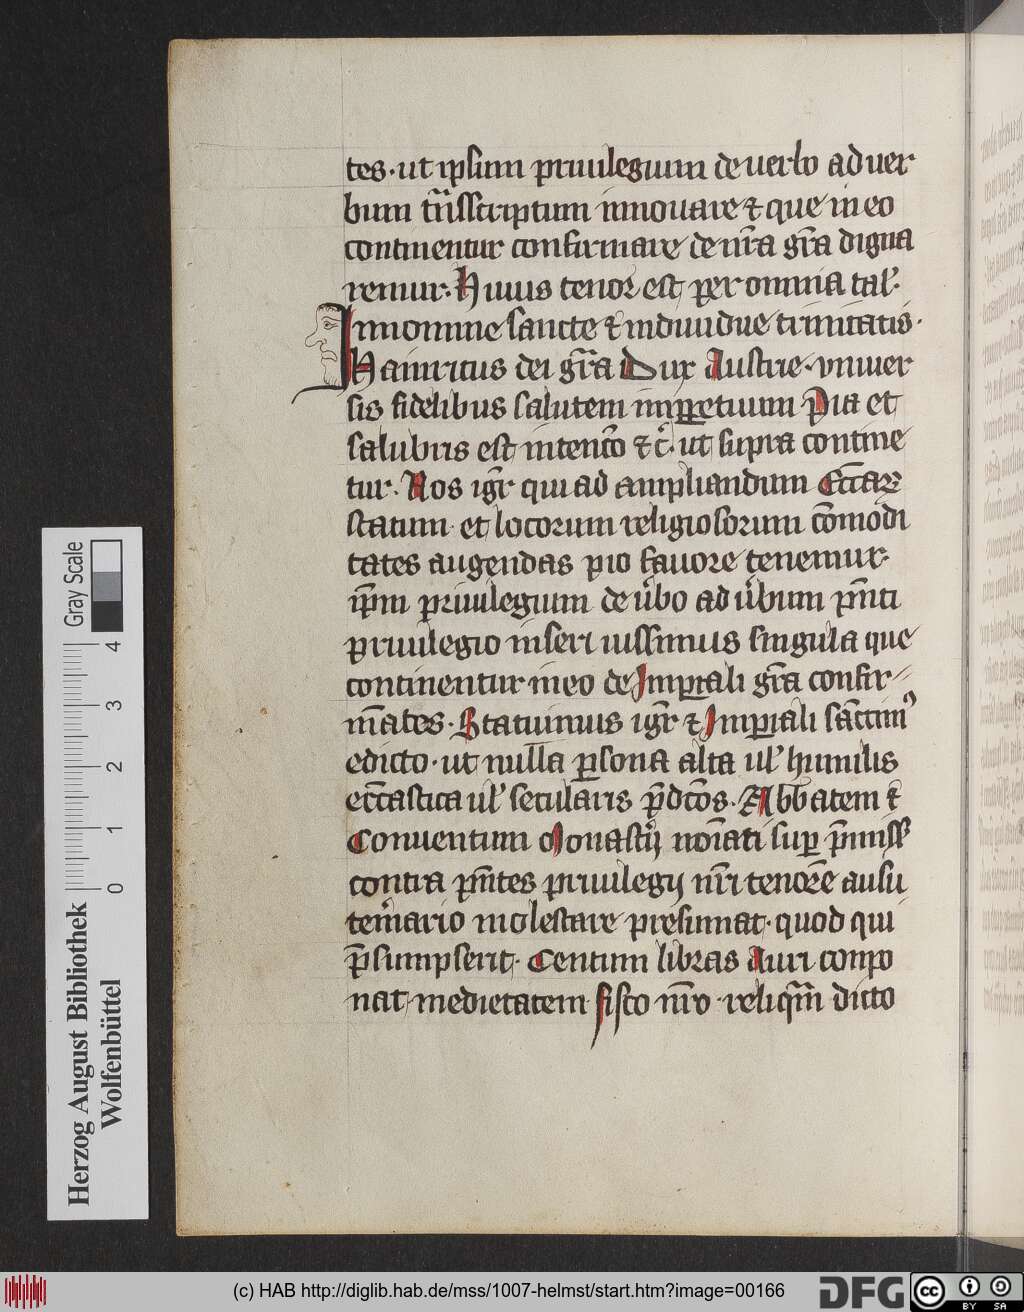 tes · ut ipsum priuilegium de uerbo ad uer
bum tͣnsscriptum innouare ⁊ que in eo
continentur confirmare de nr̄a gr̄a digna
remur · Huius tenor est per omnia tal̕ ·
In nomine sancte ⁊ indiuidue trinitatis ·
Hainricus dei gr̄a Dux Austrie · vniuer
sis fidelibus salutem inꝑpetuum Pia et
salubris est intenc̄o ⁊ c̕ · ut supra contine
tur · Nos igr̄ qui ad ampliandum Ecc̄aꝝ
statum · et locorum religiosorum cōmodi
tates augendas pio fauore tenemur ·
ip̄m priuilegium de u̕bo ad u̕bum p̄nti
priuilegio inseri iussimus singula que
continentur in eo de Imꝑiali gr̄a confir
mātes · Statuimus igr̄ ⁊ Imꝑiali sāccimꝰ
edicto · ut nulla ꝑsona alta ul̕ humilis
ecc̄astica ul̕ secularis p̄dc̄os · Abb̄atem ⁊
Conuentum Monast̕ij nōīati suꝑ p̄miss̕
contra p̄ntes priuilegij nr̄i tenorē ausu
tem̕ario molestare presumat · quod qui
p̄sumpserit · Centum libras Auri conpo
nat medietatem fisco nr̄o · reliqͣm dicto
Gray Scale
0 1 2 3 4
Herzog August Bibliothek
Wolfenbüttel
(c) HAB http://diglib.hab.de/mss/1007-helmst/start.htm?image=00166
DFG
cc
BY SA